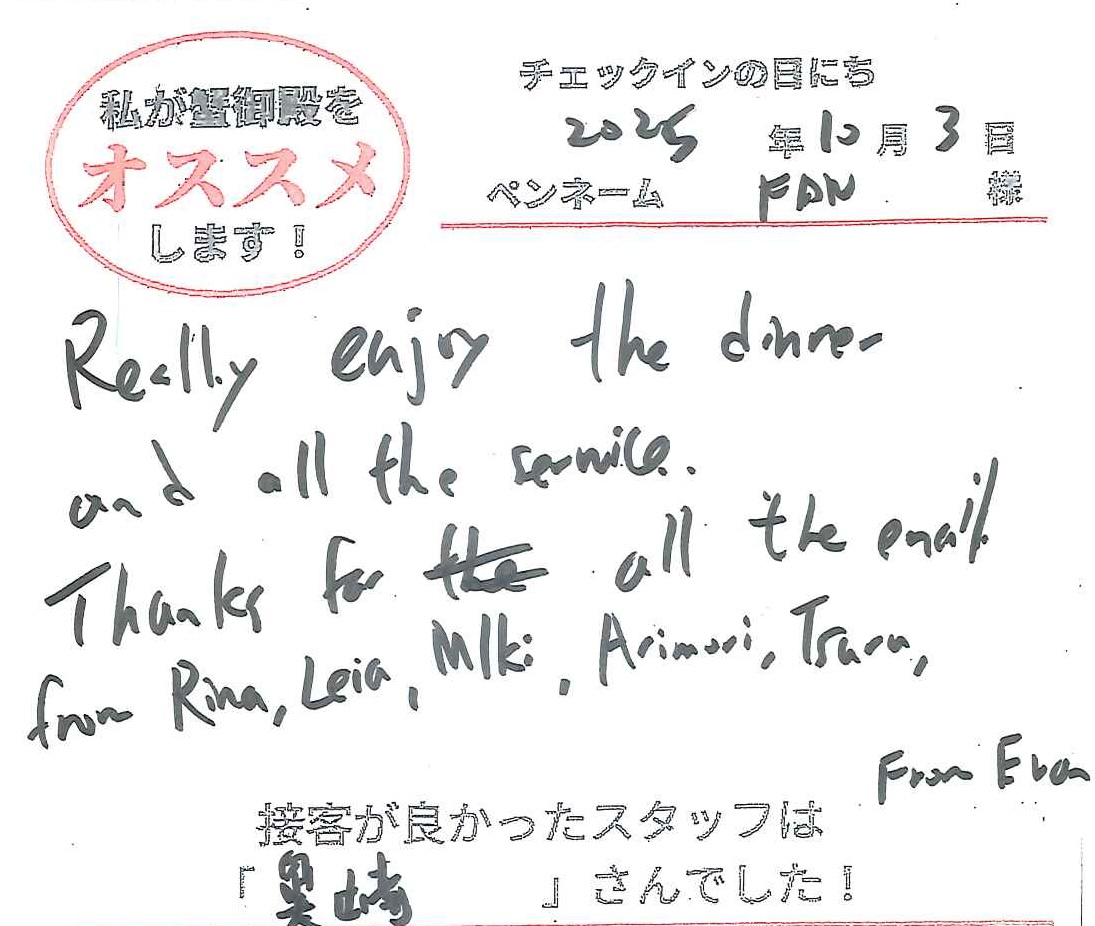 私が蟹御殿を
オススメ
します！
チェックインの日にち
2025 年 10 月 3 日
ペンネーム FAN 様
Really enjoy the dinner
and all the service.
Thanks for the all the email
from Rina, Leia, MIki, Arimori, Tsuru,
From Evan
接客が良かったスタッフは
「 崎 」さんでした！